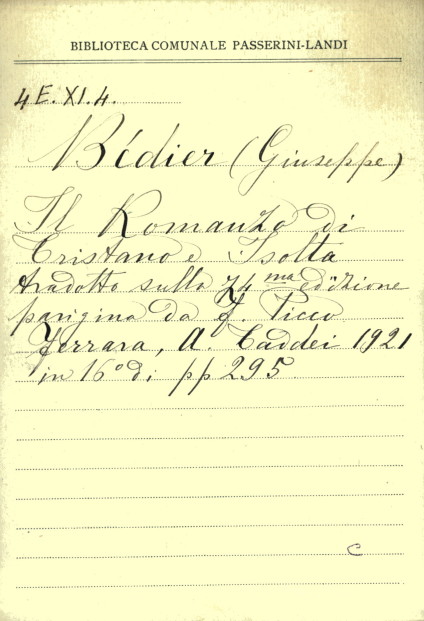 BIBLIOTECA COMUNALE PASSERINI-LANDI
4E.XI.4.
Bédier (Giuseppe)
Il Romanzo di
Tristano e Isolta
tradotto sulla 74ma edizione
parigina da F. Picco
Ferrara, A. Taddei 1921
in 16° di pp 295
C